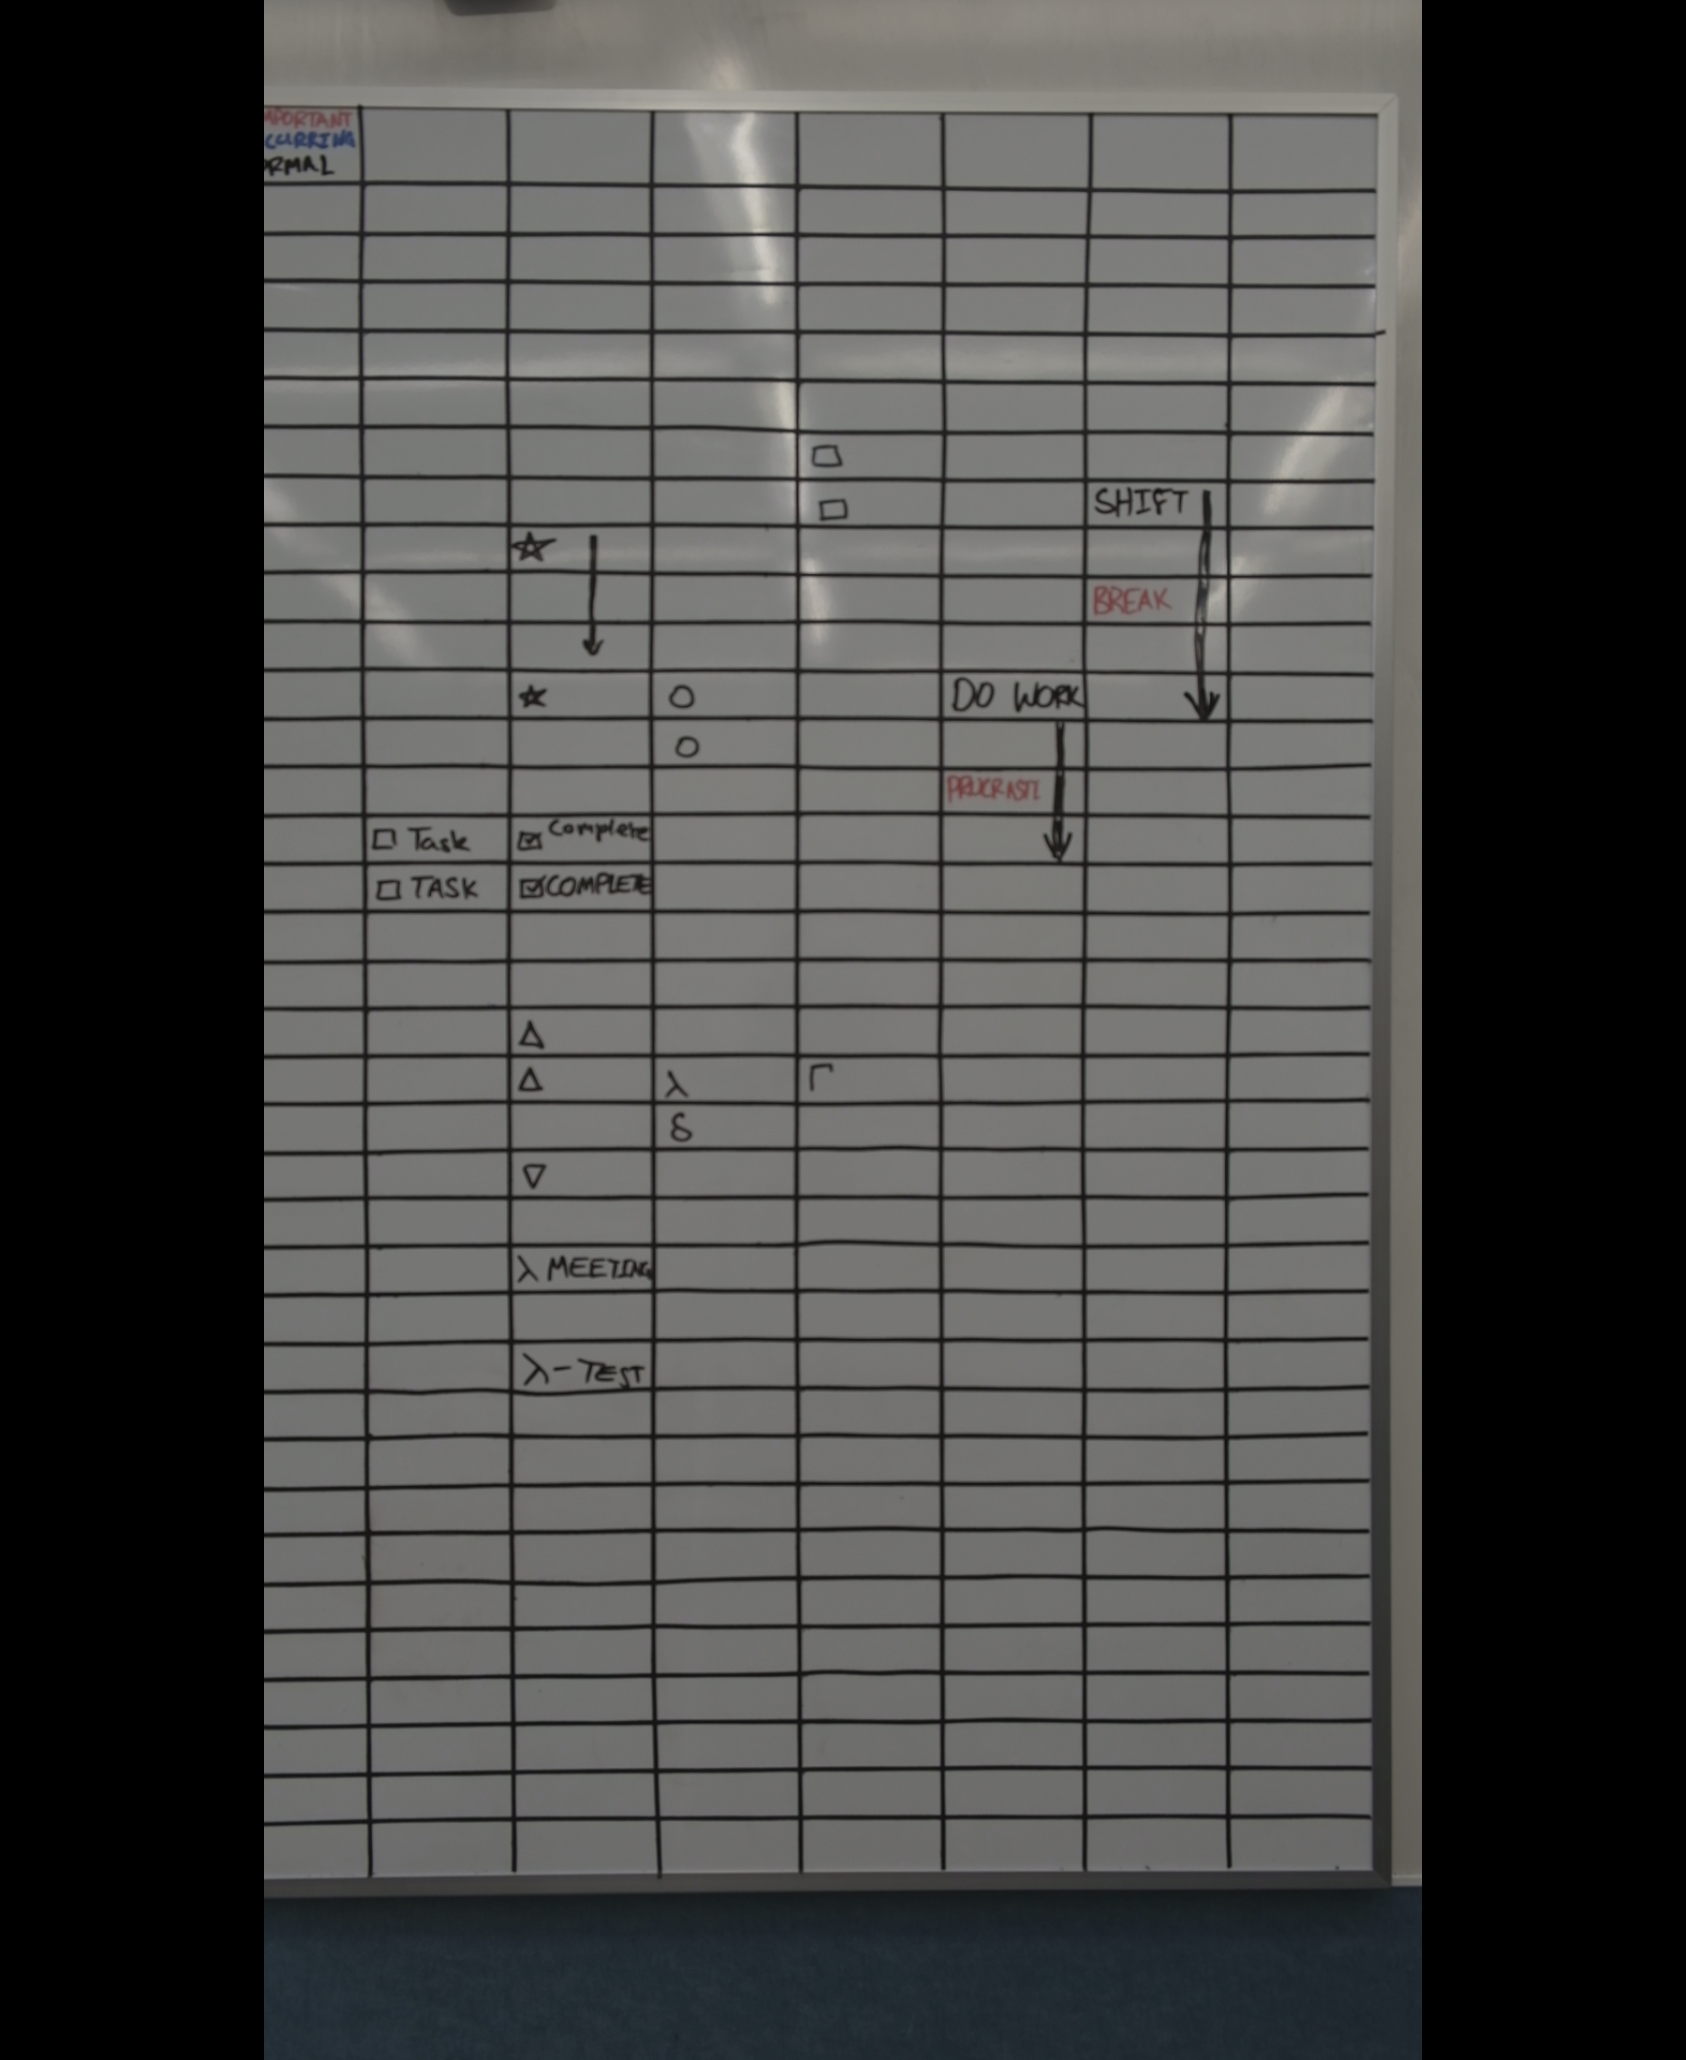 MPORTANT
CURRING
ORMAL
SHIFT
BREAK
DO WORK
Task Complete
TASK COMPLETE
λ Γ
δ
λ MEETING
λ - TEST